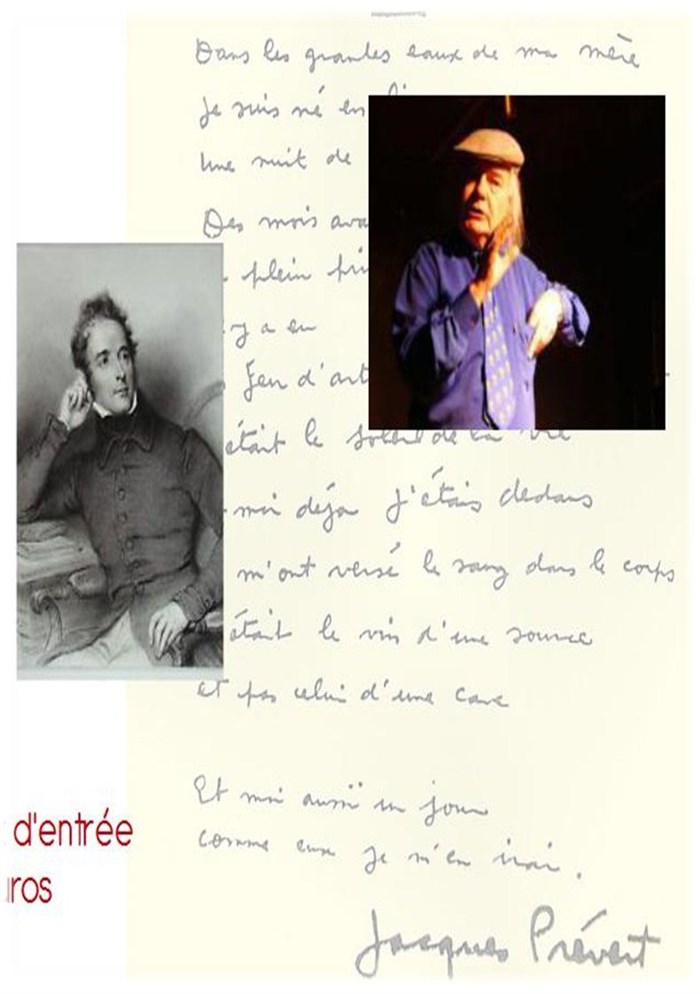 Dans les grandes eaux de ma mère
je suis né en
Une nuit de
Des mois ava
plein
y a eu
feu d'art
était le soleil de la vie
moi déja j'étais dedans
m'ont versé le sang dans le corps
était le vin d'une source
et pas celui d'une cave
Et moi aussi un jour
comme eux je m'en irai.
Jacques Prévert
d'entrée
ros